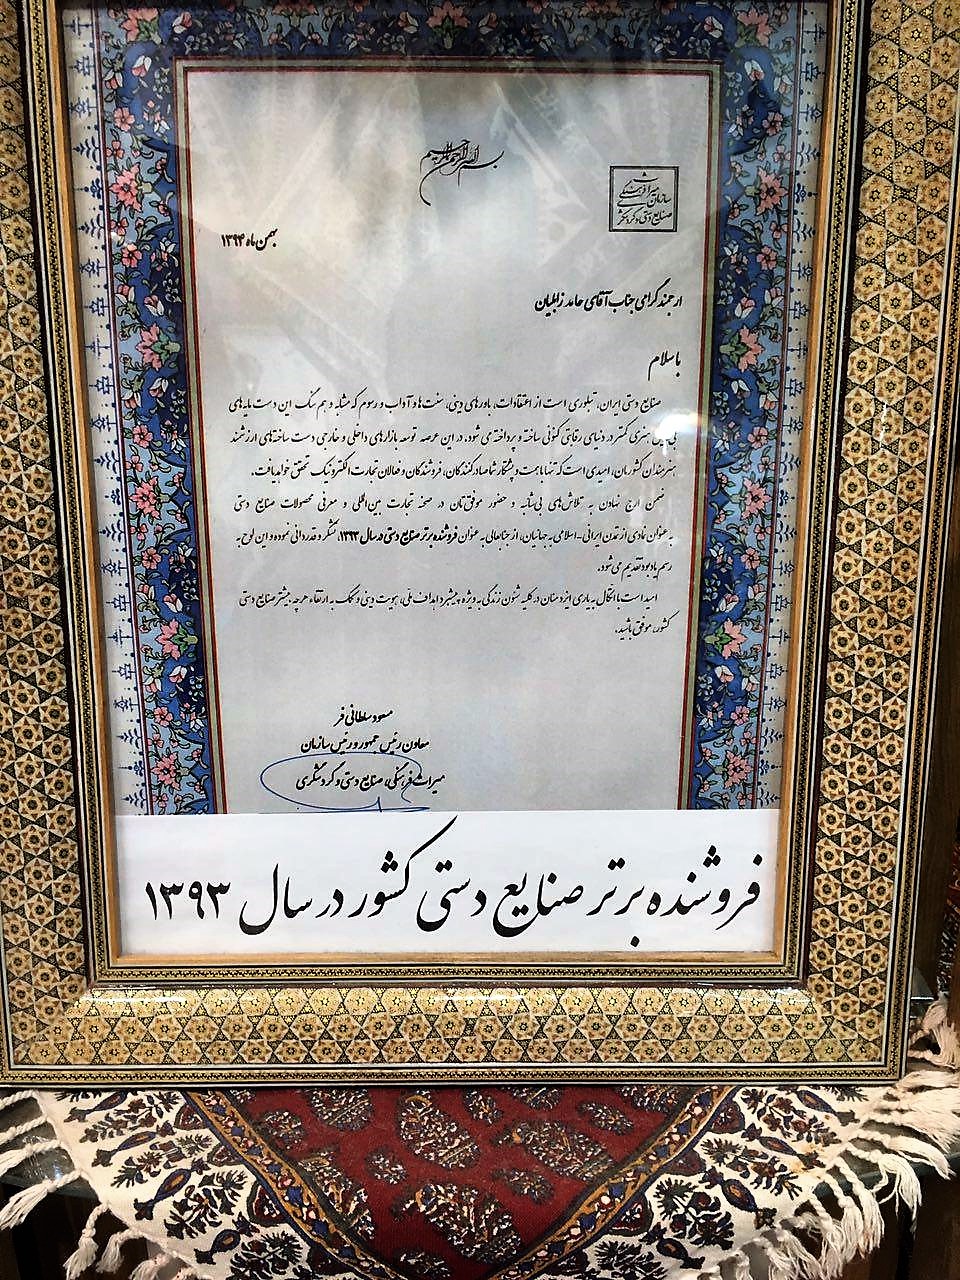 بسم الله الرحمن الرحیم
سازمان میراث فرهنگی
صنایع دستی و گردشگری
بهمن ماه ۱۳۹۴
ارجمند گرامی جناب آقای حامد زابلیان
با سلام
صنایع دستی ایران، تبلوری است از اعتقادات، باورهای دینی، سنت ها و آداب و رسوم که مشابه و هم سنگ این دست مایه های
بی بدیل هنری کمتر در دنیای رقابتی کنونی ساخته و پرداخته می شود. در این عرصه توسعه بازارهای داخلی و خارجی دست ساخته های ارزشمند
هنرمندان کشورمان، امیدی است که تنها با همت و پشتکار شما صادرکنندگان، فروشندگان و فعالان تجارت الکترونیک تحقق خواهد یافت.
ضمن ارج نهادن به تلاش های بی شائبه و حضور موفق تان در صحنه تجارت بین المللی و معرفی محصولات صنایع دستی
به عنوان نمادی از تمدن ایرانی - اسلامی به جهانیان، از جنابعالی به عنوان فروشنده برتر صنایع دستی در سال ۱۳۹۳، تشکر و قدردانی نموده و این لوح به
رسم یادبود تقدیم می شود.
امید است با اتکال به یاری ایزد منان در کلیه شئون زندگی به ویژه پیشبرد اهداف ملی، هویت دینی و کمک به ارتقاء هرچه بیشتر صنایع دستی
کشور، موفق باشید.
مسعود سلطانی فر
معاون رئیس جمهور و رئیس سازمان
میراث فرهنگی، صنایع دستی و گردشگری
فروشنده برتر صنایع دستی کشور در سال ۱۳۹۳